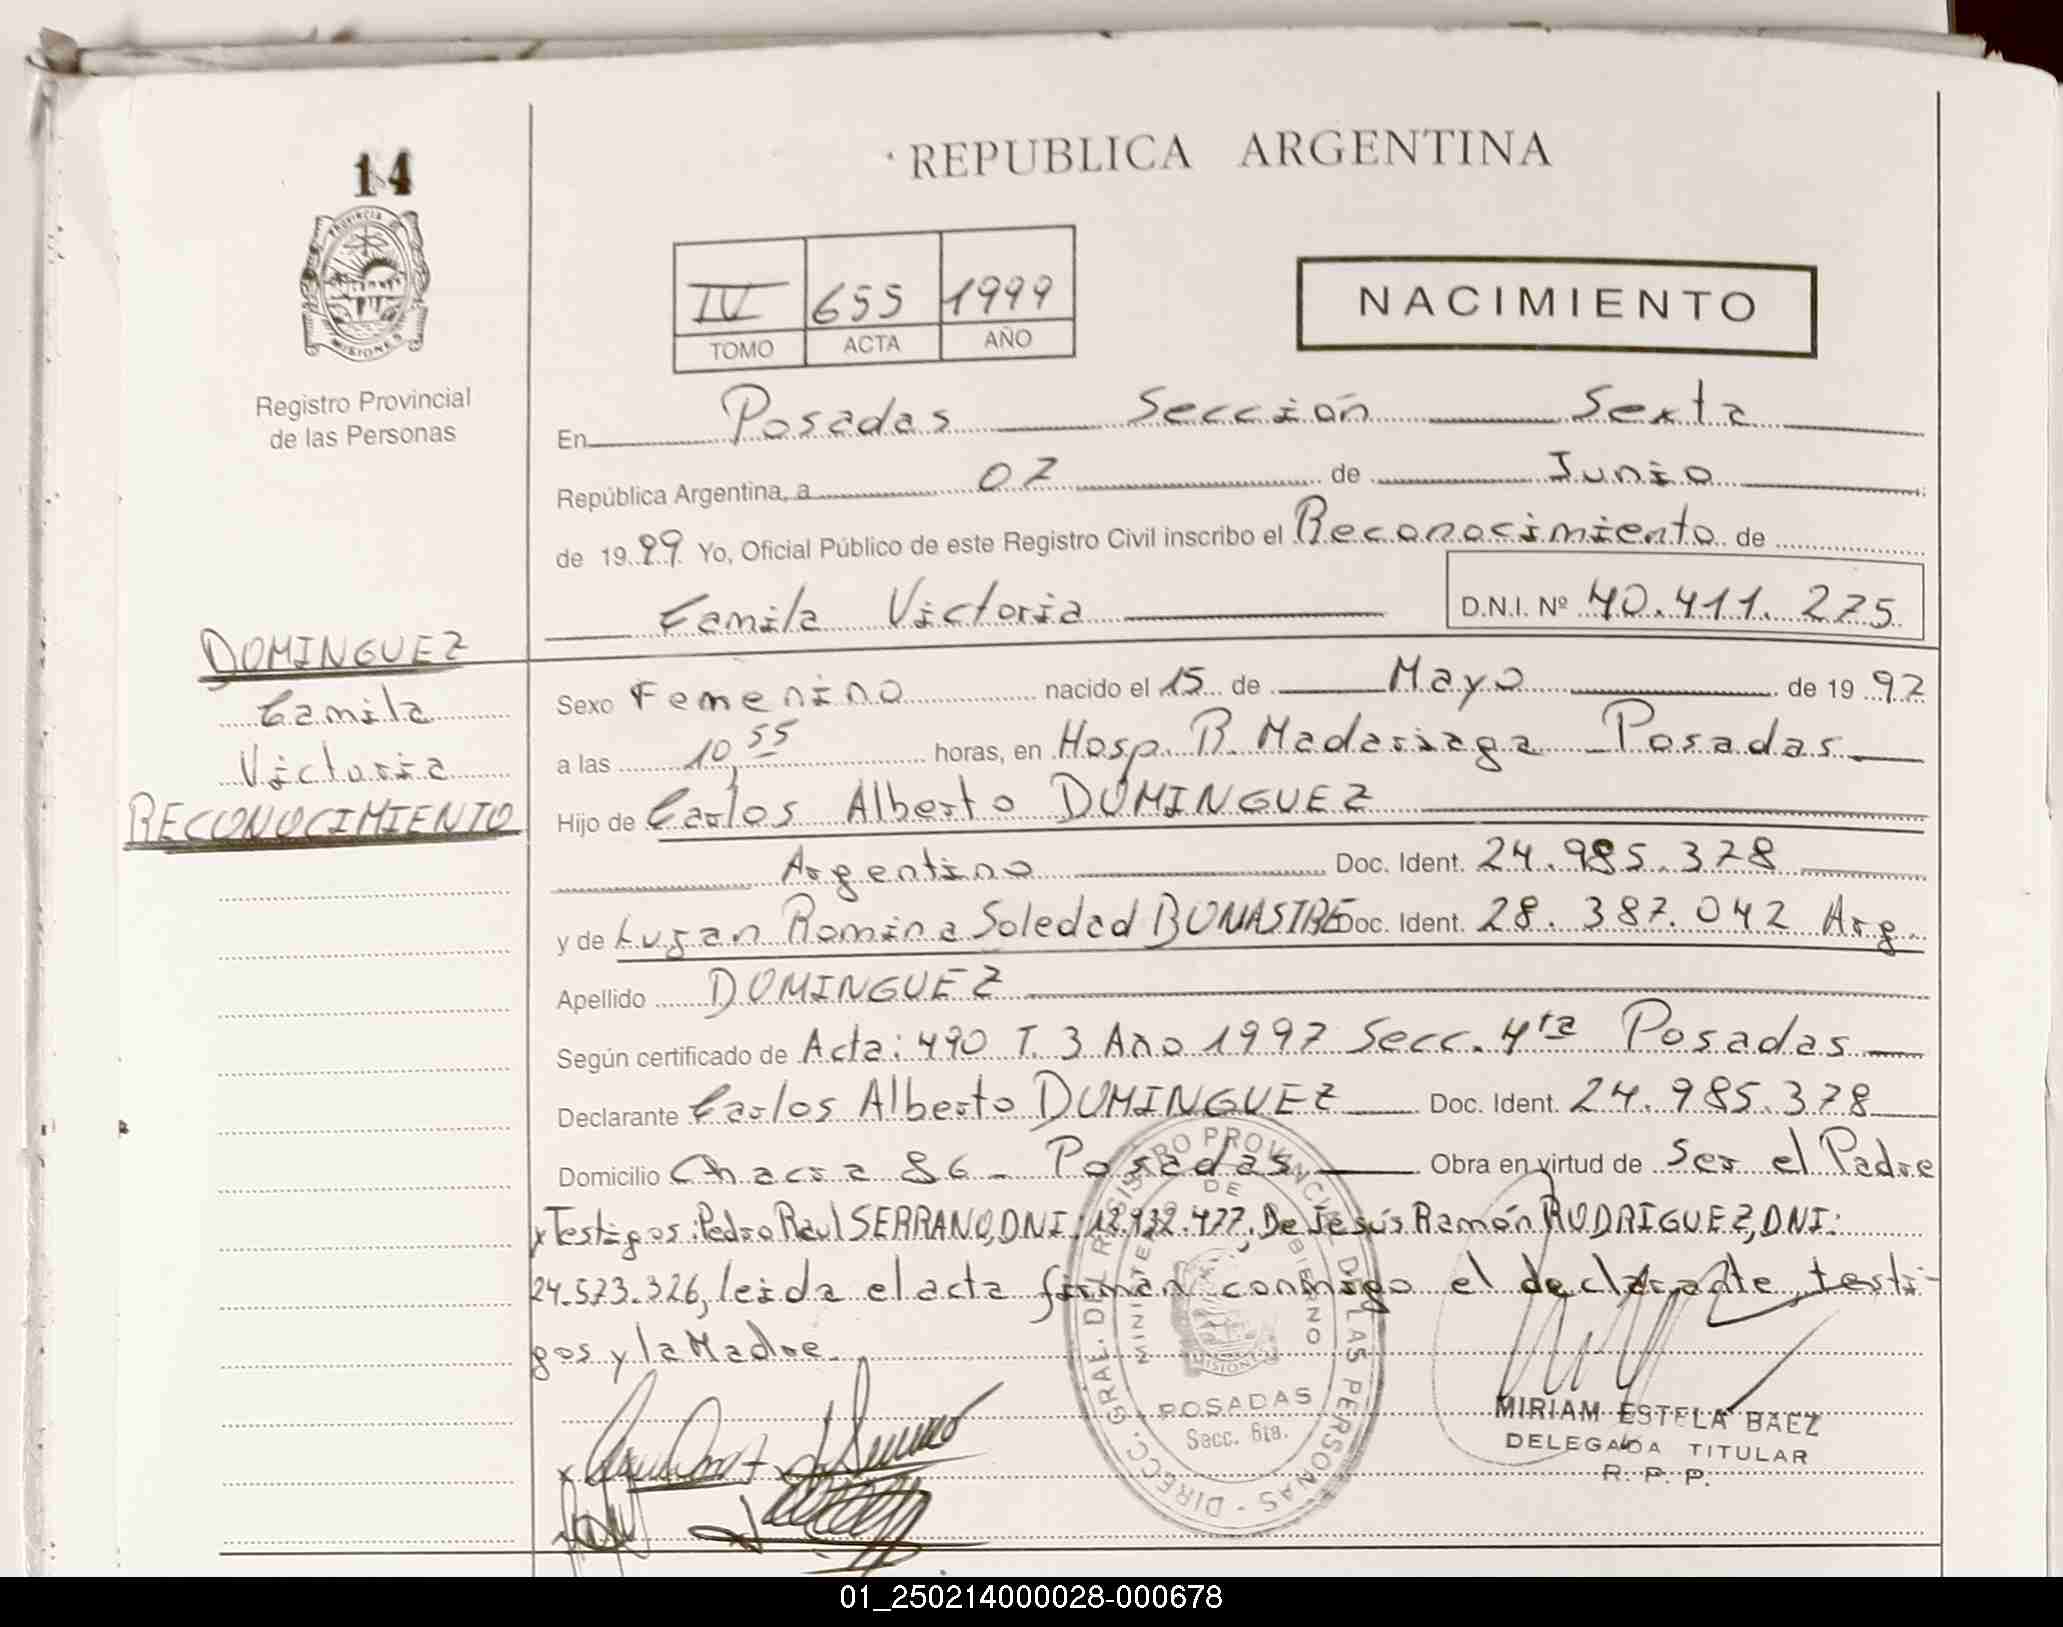 14
PROVINCIA
MISIONES
Registro Provincial
de las Personas
REPUBLICA ARGENTINA
IV 655 1999
TOMO ACTA AÑO
NACIMIENTO
En Posadas Sección Sexta
República Argentina, a 07 de Junio
de 1999 Yo, Oficial Público de este Registro Civil inscribo el Reconocimiento de
Camila Victoria D.N.I. Nº 40.411.275
DOMINGUEZ
Camila
Victoria
RECONOCIMIENTO
Sexo Femenino nacido el 15 de Mayo de 1997
a las 10,55 horas, en Hosp. R. Madariaga Posadas
Hijo de Carlos Alberto DOMINGUEZ
Argentino Doc. Ident. 24.985.378
y de Romina Soledad BONASTRE Doc. Ident. 28.387.042 Arg.
Apellido DOMINGUEZ
Según certificado de Acta: 490 T. 3 Año 1997 Secc. 4ta Posadas
Declarante Carlos Alberto DOMINGUEZ Doc. Ident. 24.985.378
Domicilio Chacra 86 - Posadas Obra en virtud de Ser el Padre
x Testigos: Pedro Raul SERRANO, DNI: 12.932.477. De Jesús Ramón RODRIGUEZ, DNI:
24.573.326, leida el acta firman conmigo el declarante, testi-
gos y la Madre.
DIRECC. GRAL. DEL REGISTRO PROVINCIAL DE LAS PERSONAS
MINISTERIO DE GOBIERNO
MISIONES
POSADAS
Secc. 6ta.
MIRIAM ESTELA BAEZ
DELEGADA TITULAR
R. P. P.
01_250214000028-000678